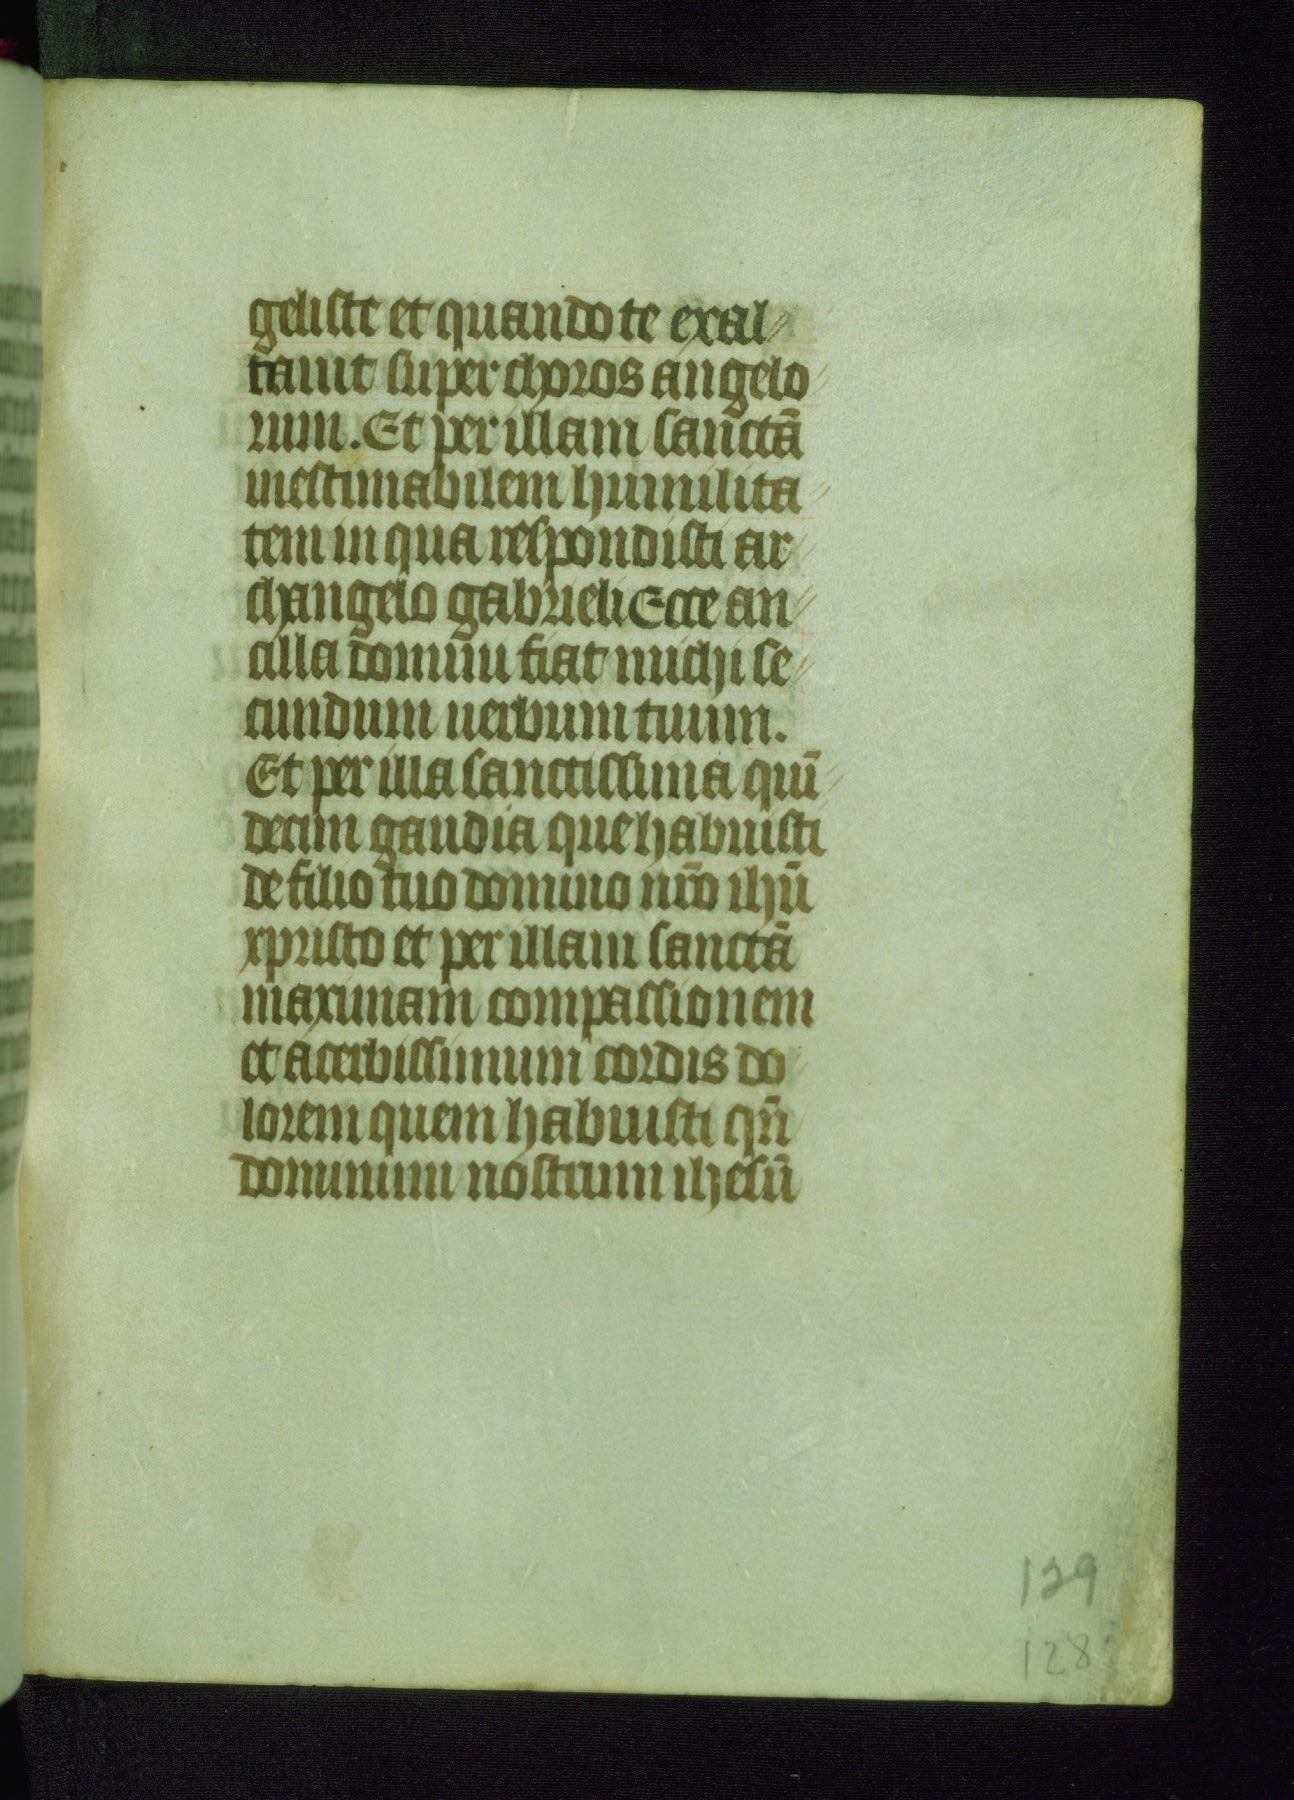 geliste et quando te exal
tauit super choros angelo
rum. Et per illam sanctā
inestimabilem humilita
tem in qua respondisti ar
changelo gabrieli Ecce an
cilla domini fiat michi se
cundum uerbum tuum.
Et per illa sanctissima quī
decim gaudia que habuisti
de filio tuo domino nr̄o ihū
xpristo et per illam sanctā
maximam compassionem
et acerbissimum cordis do
lorem quem habuisti qn̄
dominum nostrum ihesū
129
128